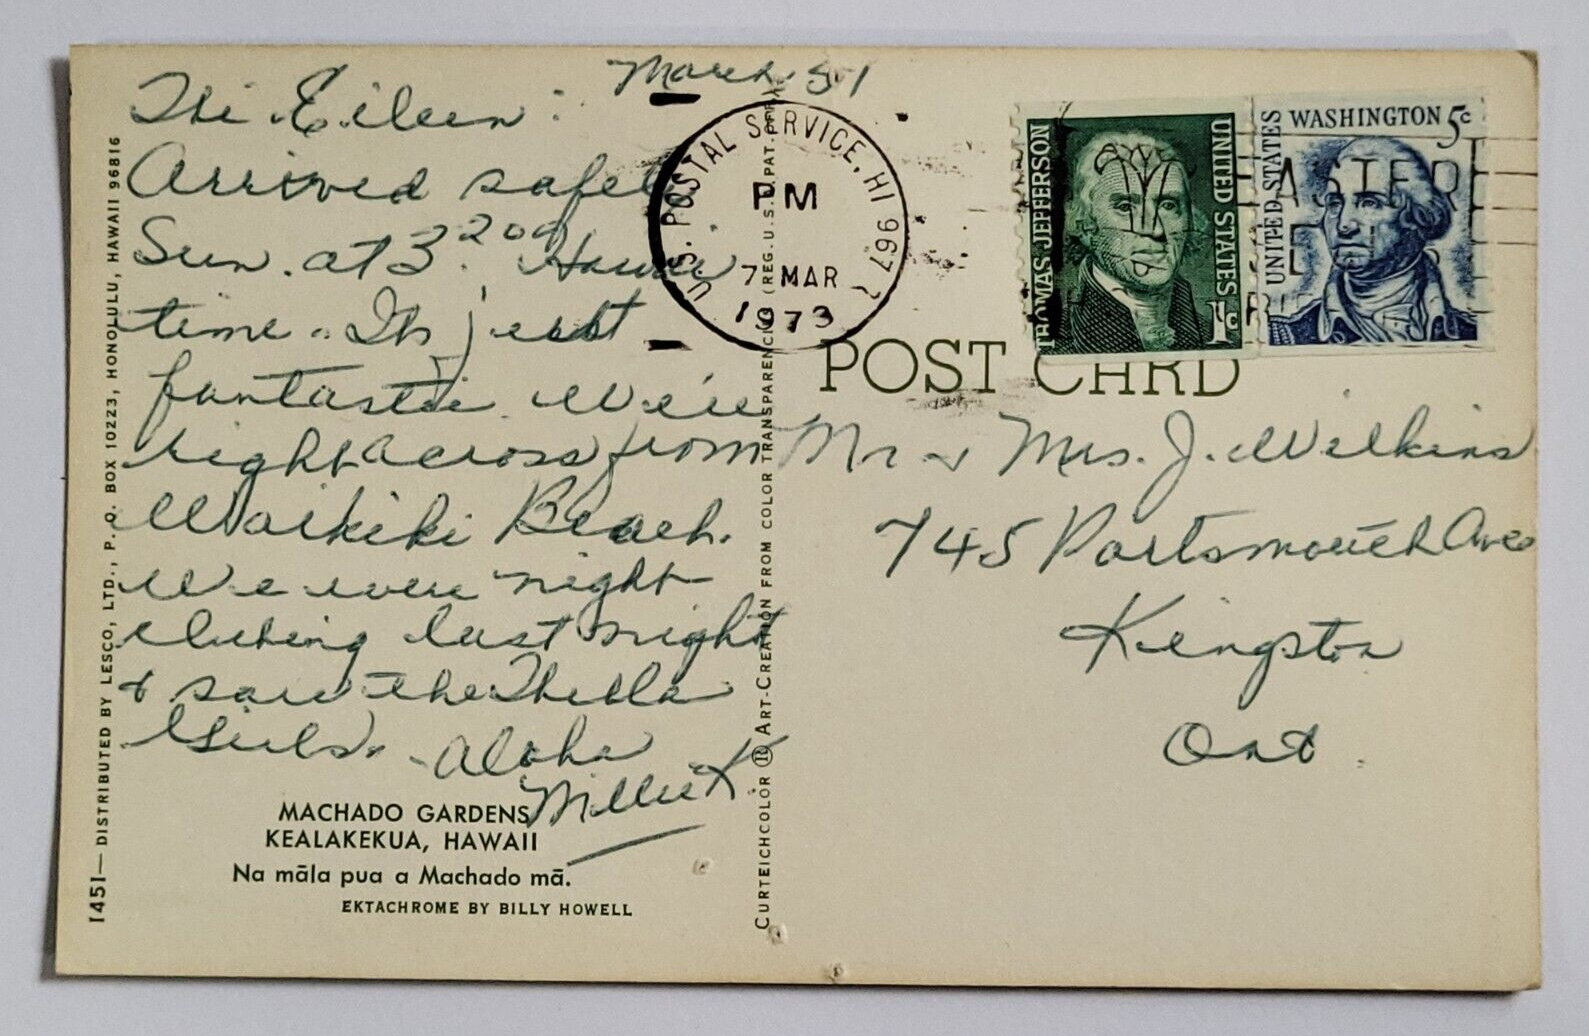 March 5/
Hi Eileen:
Arrived safely
Sun. at 3:20 Hawaii
time. It's just
fantastic. We're
right across from
Waikiki Beach.
We were night
clubing last night
& saw the
Girls. Aloha
Millie K
MACHADO GARDENS
KEALAKEKUA, HAWAII
Na māla pua a Machado mā.
EKTACHROME BY BILLY HOWELL
1451—DISTRIBUTED BY LESCO, LTD., P. O. BOX 10223, HONOLULU, HAWAII 96816
CURTEICHCOLOR ® ART-CREATION FROM COLOR TRANSPARENCIES (REG. U.S.A. PAT. OFF.)
U.S. POSTAL SERVICE, HI 967
PM
7 MAR
1973
THOMAS JEFFERSON
UNITED STATES
1c
UNITED STATES
WASHINGTON 5c
EASTER
POST CARD
Mr & Mrs. J. Wilkins
745 Portsmouth Ave
Kingston
Ont.